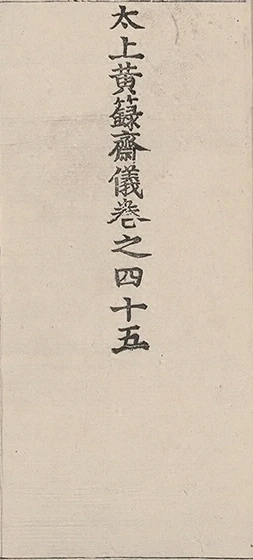 太上黃籙齋儀卷之四十五